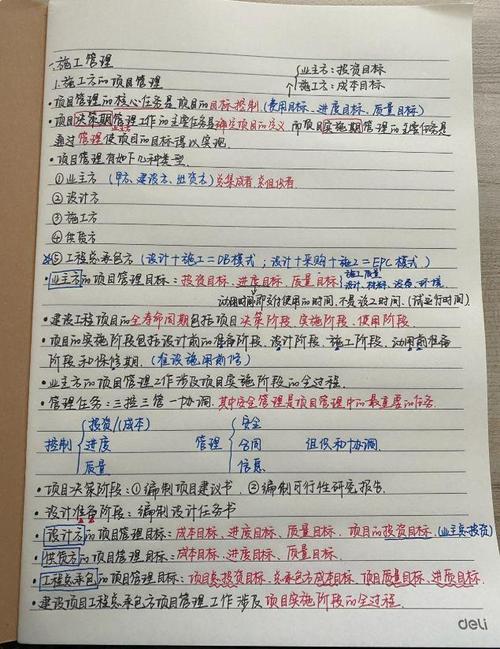 一、施工管理
1.施工方的项目管理
业主方:投资目标
施工方:成本目标
·项目管理的核心任务是项目的目标控制(费用目标、进度目标、质量目标)
·项目决策期管理工作的主要任务是确定项目的定义 而项目实施期管理的主要任务是
通过管理使项目的目标得以实现.
·项目管理有如下几种类型.
①业主方 (甲方、建设方、出资方)总集成者.总组织者.
②设计方
③施工方
④供货方
⑤工程总承包方(设计+施工=DB模式;设计+采购+施工=EPC模式)
·业主方的项目管理目标:投资目标、进度目标、质量目标
施工质量
设计、材料、设备、环境.
动用时间即交付使用的时间、不是竣工时间.(试运行时间)
·建设工程项目的全寿命周期包括项目决策阶段、实施阶段、使用阶段.
·项目的实施阶段包括设计前的准备阶段、设计阶段、施工阶段、动用前准备
阶段和保修期.(准设施用前修)
·业主方的项目管理工作涉及项目实施阶段的全过程.
·管理任务:三控三管一协调.其中安全管理是项目管理中的最重要的任务.
控制 投资/(成本) 进度 质量 管理 安全 合同 信息 组织和协调.
·项目决策阶段:①编制项目建议书.②编制可行性研究报告.
·设计准备阶段:编制设计任务书
·设计方的项目管理目标:成本目标、进度目标、质量目标、项目的投资目标.(业主总投资)
·供货方的项目管理目标:成本目标、进度目标、质量目标.
·工程总承包的项目管理目标:项目总投资目标、总承包方成本目标、项目质量目标、进度目标.
·建设项目工程总承包方项目管理工作涉及项目实施阶段的全过程.
deli